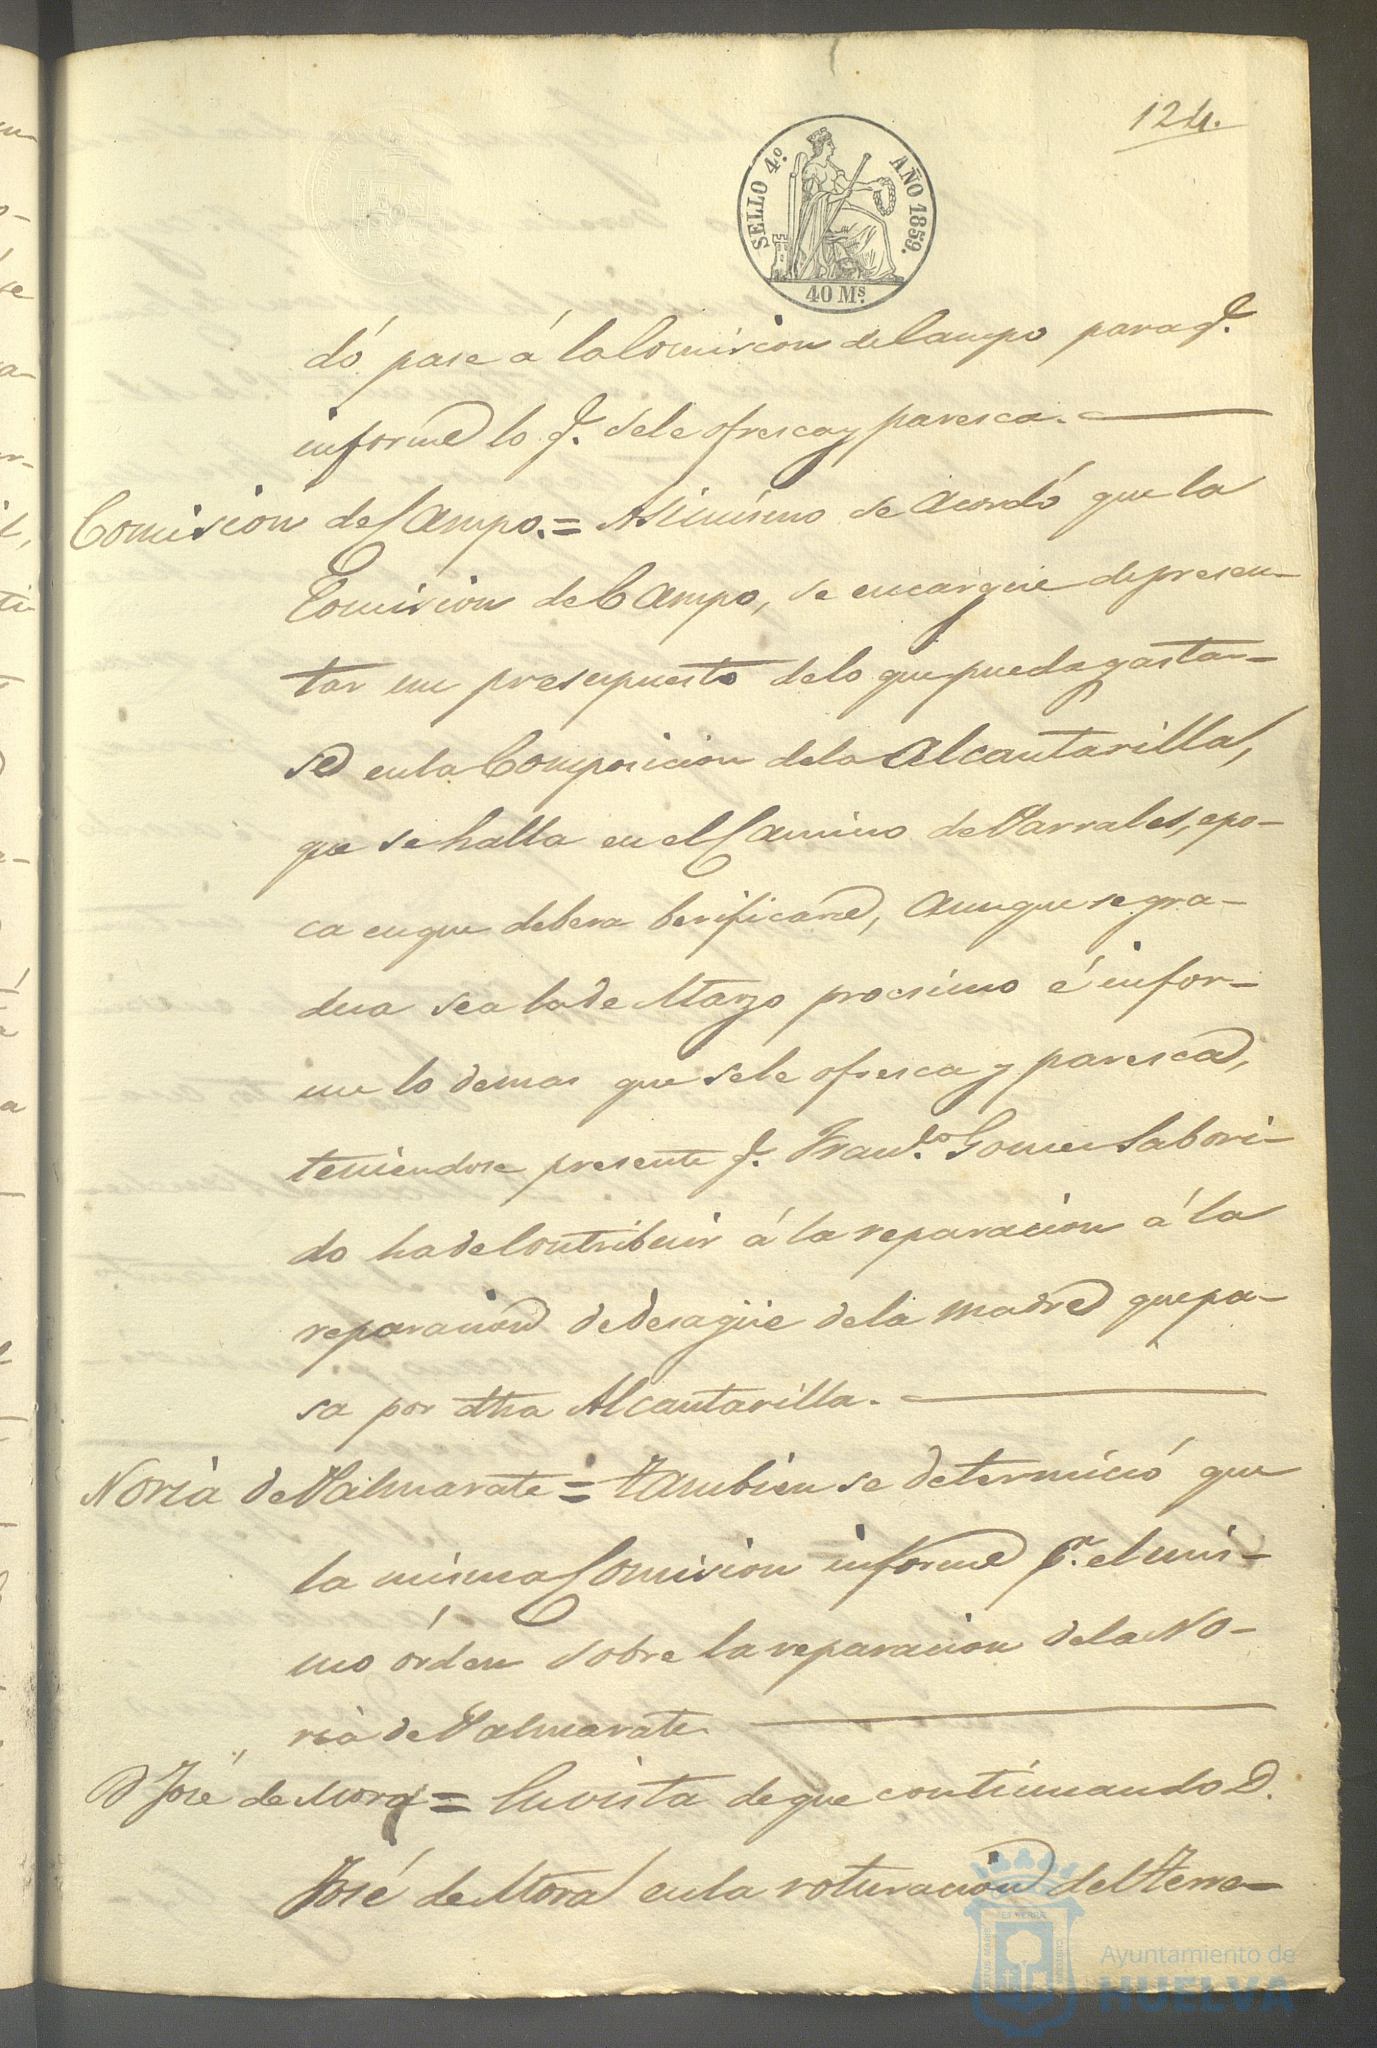 124.
SELLO 4.º AÑO 1859.
40 Ms.
dó pase á la Comision de Campo para q.e
informe lo q. se le ofresca y paresca.
Comision de Campo. = Asimismo se acordó que la
Comision de Campo, se encargue de presen-
tar un presupuesto de lo que pueda gastar-
se en la Composicion de la Alcantarilla,
que se halla en el Camino de Parrales, epo-
ca en que debera berificarse, aunque se gra-
dua sea la de Marzo procsimo é infor-
me lo demas que se le ofresca y paresca,
teniendose presente q. Fran.co Gomez Sabori-
do ha de Contribuir á la reparacion á la
reparacion de desagüe de la madre que pa-
sa por dha Alcantarilla.
Noria de Valmarate = Tambien se determició que
la misma Comision informe p.r el mis-
mo órden sobre la reparacion de la No-
ria de Valmarate.
D José de Mora = En vista de que continuando D.
José de Mora en la roturacion del terre-
Ayuntamiento de
HUELVA